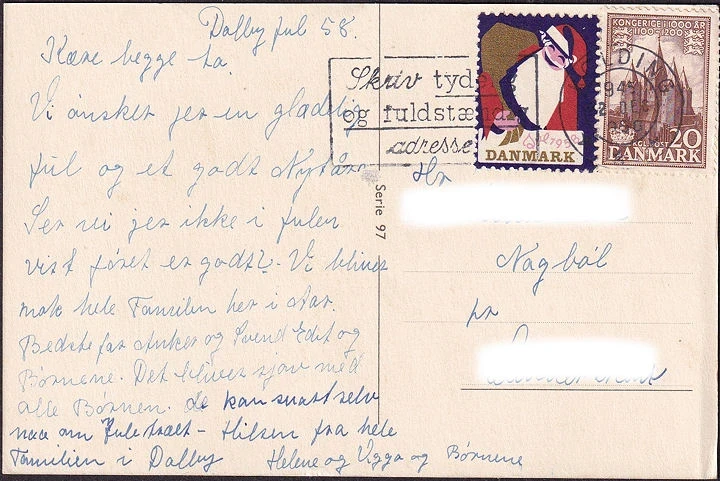 Dalby Jul 58.
Kære begge to.
Vi ønsker jer en glædelig
jul og et godt Nytår.
Ser vi jer ikke i julen
vist føret er godt? Vi bliver
nok hele Familien her i Aar.
Bedstefar Anker og Svend Edit og
Børnene. Det bliver sjov med
alle Børnen. de kan snart selv
naa om Juletræet - Hilsen fra hele
Familien i Dalby Helene og Viggo og Børnene
Skriv tydelig
og fuldstændig
adresse
Jul 1958
DANMARK
KONGERIGE I 1000 ÅR
1100-1200
20
DANMARK
KOLDING
Serie 97
Hr
Nagbøl
pr